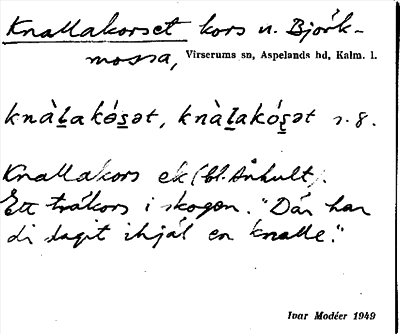 Knallakorset kors n. Björk-
mossa, Virserums sn, Aspelands hd, Kalm. l.
knàḻakóṣət, knàḻakóṣət s. 8.
Knallakors ek (bl. Ånhult).
Ett träkors i skogen. "Där har
di slagit ihjäl en knalle."
Ivar Modéer 1949